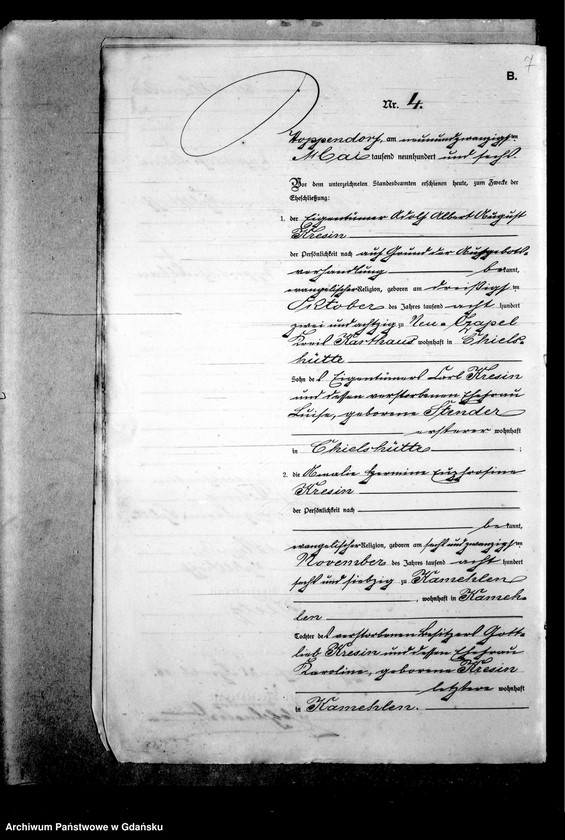 7
B.
Nr. 4.
Hoppendorf, am neunundzwanzigsten
Mai tausend neunhundert und sechs.
Vor dem unterzeichneten Standesbeamten erschienen heute, zum Zwecke der
Eheschließung:
1. der Eigentümer Adolf Albert August
Kresin
der Persönlichkeit nach auf Grund der Aufgebots-
verhandlung bekannt,
evangelischer Religion, geboren am dreißigsten
Oktober des Jahres tausend acht hundert
zwei und achtzig zu Neu-Czapel
Kreis Karthaus wohnhaft in Chiels-
hütte
Sohn des Eigentümers Carl Kresin
und dessen verstorbenen Ehefrau
Luise, geborene Stender
ersterer wohnhaft
in Chielshütte;
2. die Amalie Hermine Euphrosine
Kresin
der Persönlichkeit nach
bekannt,
evangelischer Religion, geboren am sechsundzwanzigsten
November des Jahres tausend acht hundert
sechs und siebzig zu Kamehlen
, wohnhaft in Kameh-
len
Tochter des verstorbenen Besitzers Gott-
lieb Kresin und dessen Ehefrau
Karoline, geborene Kresin
letztere wohnhaft
in Kamehlen.
Archiwum Państwowe w Gdańsku